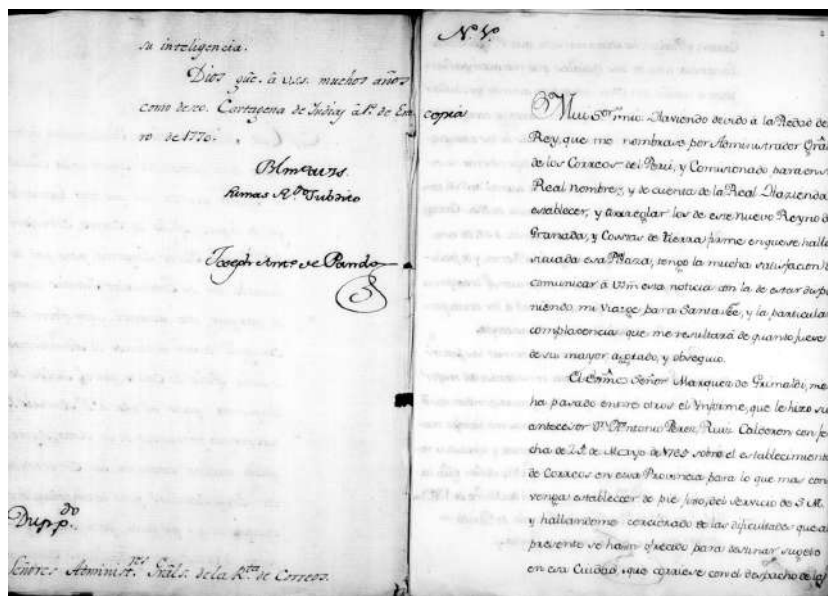 su inteligencia.
Dios gûe. â V.SS. muchos años
como deseo. Cartagena de Indias â 1º. de Ene
ro de 1770.
BlmºâVSS.
su mas Rº. Subdito
Joseph Antº. de Pando
Dupp.do
Señores Administ.res Grāls. de la R.ta de Correos.
Nº. 1º.
copia
Mui Sor. mio: Haviendo devido â la Piedad del
Rey, que me nombrase por Administrador Grāl
de los Correos del Perú, y Comisionado para en su
Real nombre, y de cuenta de la Real Hazienda
establecer, y arreglar los de este nuevo Reyno de
Granada, y Costas de tierra firme en que se halla
situada esa Plaza, tengo la mucha satisfacion de
comunicar â Vm esta noticia con la de estar dispo
niendo mi viage para Santa feé, y la particular
complacencia que me resultará de quanto fuere
de su mayor agrado, y obsequio.
El Exmo. Señor Marques de Grimaldi, me
ha pasado entre otros el Ynforme, que le hizo su
antecesor Dn. Antonio Ruiz Calderon con fe
cha de de Marzo de sobre el establecimiento
de Correos en esa Provincia para lo que mas con
venga establecer de pie fixo, del servicio de S. M.
y hallandome cerciorado de las dificultades que al
presente se han ofrecido para destinar sugeto
en esa Ciudad, que corriese con el despacho de las